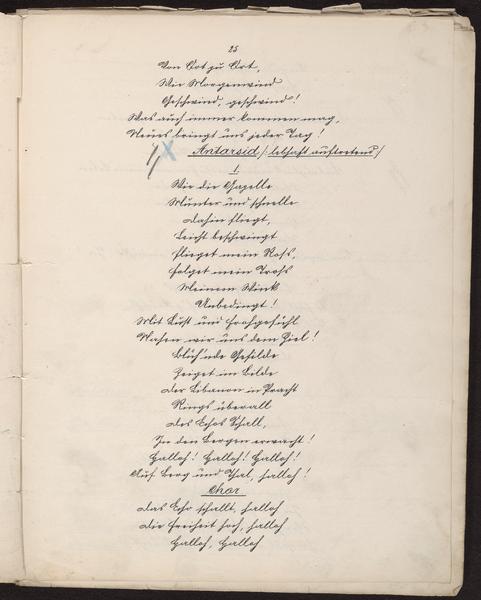 25
Von Ort zu Ort,
Wie Morgenwind
Geschwind, geschwind!
Was auch immer kommen mag,
Neues bringt uns jeder Tag!
Antarsid /: lebhaft auftretend /
1.
Wie die Gazelle
Munter und schnelle
Dahin fliegt,
Leicht beschwingt
Flieget mein Roß,
Folget mein Troß
Meinem Wink
Unbedingt!
Mit Lust und Frohgefühl
Nahen wir uns dem Ziel!
Blüh'nde Gefilde
Zeiget im Bilde
Der Libanon in Pracht
Rings überall
Des Echos Schall,
In den Bergen erwacht!
Halloh! Halloh! Halloh!
Auf Berg und Thal, halloh!
Chor
Das Echo schallt, halloh
Die Freiheit hoch, halloh
Halloh, Halloh